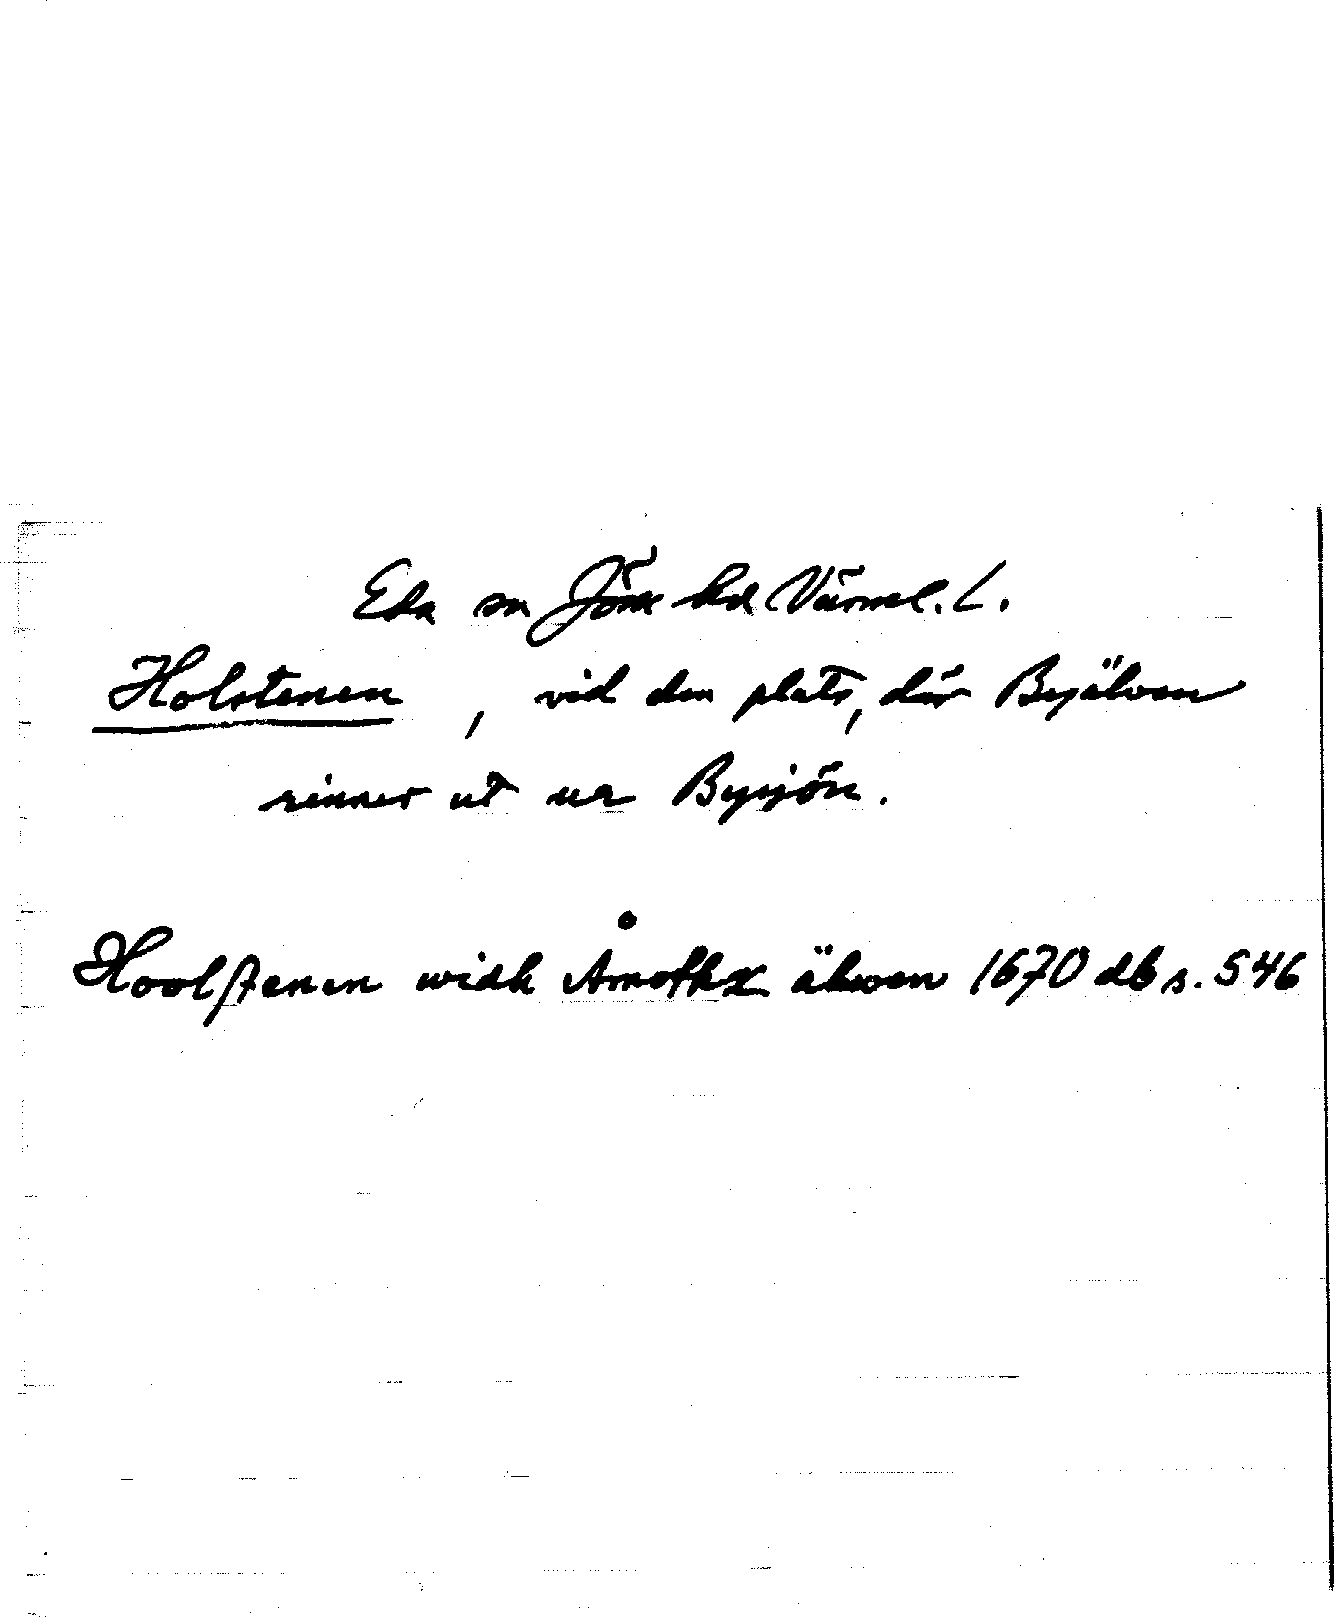 Eda sn Jösse hd Värml. L.
Holstenen, vid den plats, där Byälven
rinner ut ur Bysjön.
Hoolstenen widh Åmothz älwen 1670 db s. 546